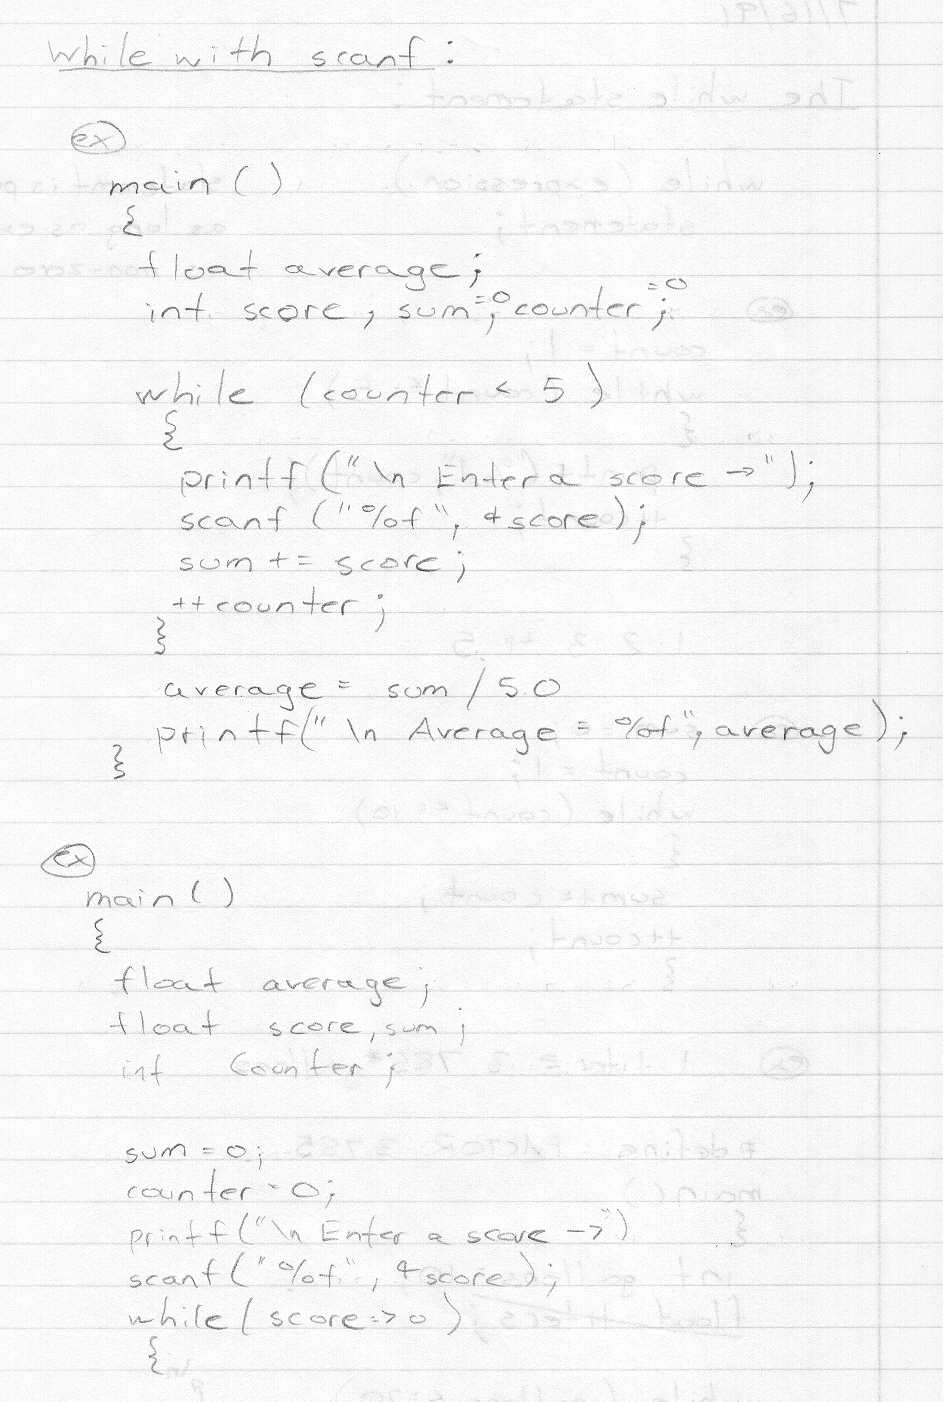 while with scanf :
ex
main ( )
{
float average ;
int score , sum =0 , counter =0 ;
while (counter < 5 )
{
printf ("\n Enter a score →" ) ;
scanf ("%f ", &score) ;
sum += score ;
++counter ;
}
average = sum / 5.0
printf(" \n Average = %f", average ) ;
}
ex
main ( )
{
float average ;
float score, sum ;
int Counter ;
sum = 0 ;
counter = 0 ;
printf("\n Enter a score →")
scanf ("%f", &score) ;
while ( score => 0 )
{